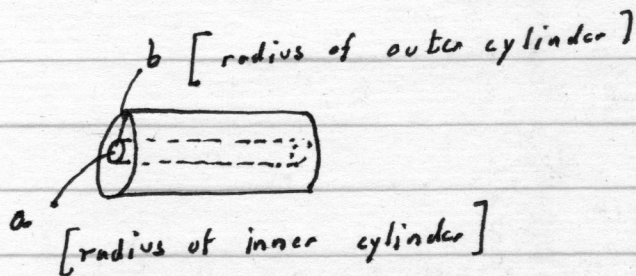 b [radius of outer cylinder]
a
[radius of inner cylinder]